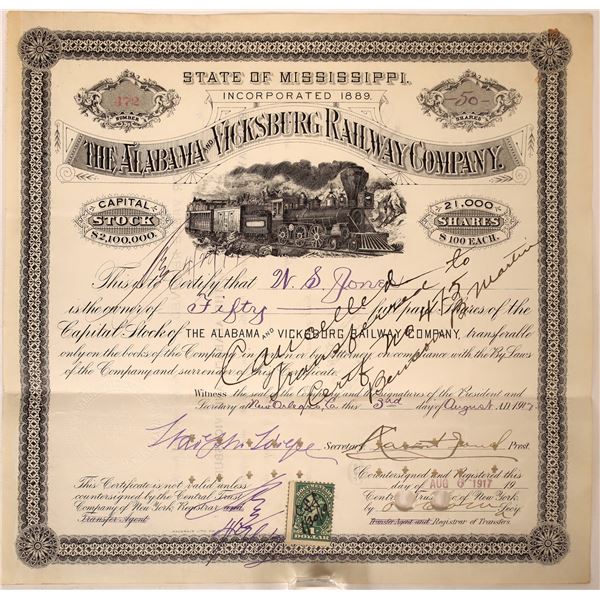 STATE OF MISSISSIPPI.
INCORPORATED 1889.
472
NUMBER
-50-
SHARES
THE ALABAMA AND VICKSBURG RAILWAY COMPANY.
CAPITAL
STOCK
$2,100,000.
21,000
SHARES
$100 EACH.
This is to Certify that W. S. Jones
is the owner of Fifty full paid Shares of the
Capital Stock of THE ALABAMA AND VICKSBURG RAILWAY COMPANY, transferable
only on the books of the Company in person or by attorney on compliance with the By Laws
of the Company and surrender of this Certificate.
Cancelled
transferred to
Cert No 475
Martin
Witness the seal of the Company and the signatures of the President and
Secretary at New Orleans, La this 3rd day of August A.D. 1917.
Secretary
Prest.
This Certificate is not valid unless
countersigned by the Central Trust
Company of New York Registrar and
Transfer Agent
Countersigned and Registered this
day of AUG 6 1917 19
Central Trust Co. of New York,
by
Secy.
Transfer Agent and Registrar of Transfers.
DOLLAR